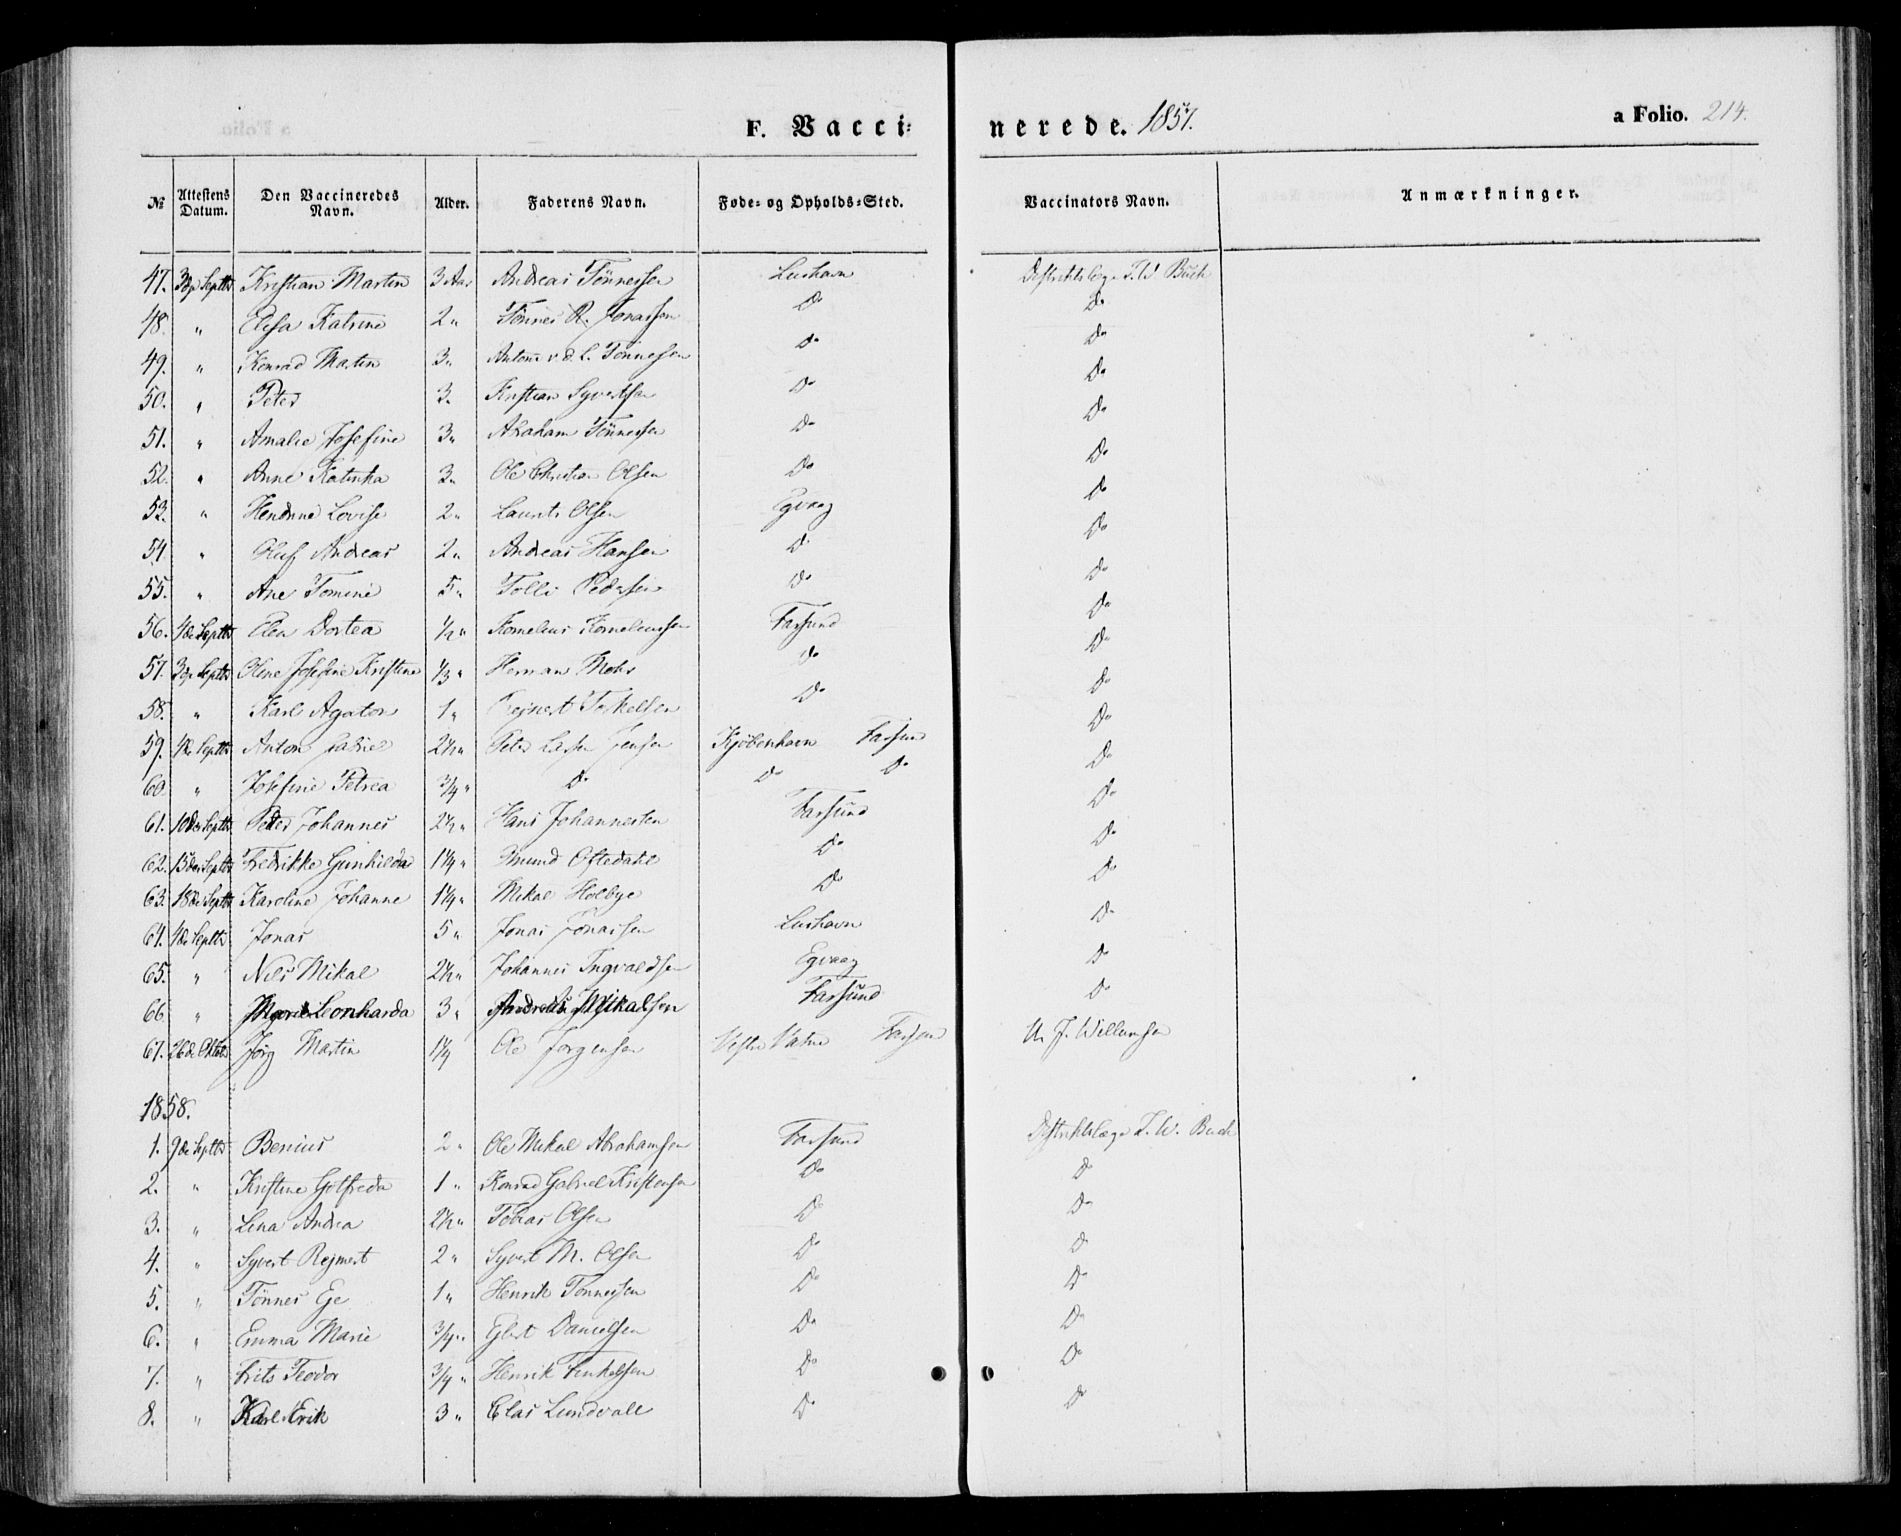 F. Vacci=nerede. 1857.
a Folio. 214.
№ Attestens Datum. Den Vaccineredes Navn. Alder. Faderens Navn. Føde= og Opholds=Sted. Vaccinators Navn. Anmærkninger.
47. 3die Septbr Kristian Martin 3 Aar Andreas Tönnessen Lushavn Distriktslæge F. W. Buch
48. " Elisa Katrine 2 " Tönnes R. Jonassen Do Do
49. " Konrad Martin 3 " Antoni v. d. L. Tönnesen Do Do
50. " Peter 3 " Kristian Syvertsen Do Do
51. " Amalie Josefine 3 " Abraham Tönnessen Do Do
52. " Anne Katinka 3 " Ole Christian Olsen Do Do
53. " Hendrine Lovise 2 " Laurits Olsen Egvaag Do
54. " Oluf Andreas 2 " Andreas Hansen Do Do
55. " Ane Tomine 5 " Tolli Pedersen Do Do
56. 4de Septbr Elen Dortea 1/2 " Kornelius Korneliussen Farsund Do
57. 3die Septbr Oline Josefine Kristine 1/3 " Herman Mohs Do Do
58. " Karl Agaton 1 " Rejnert Torkelsen Do Do
59. 4de Septbr Anton Gabriel 2 1/2 " Peter Larsen Jensen Kjöbenhavn Farsund Do
60 " Josefine Petrea 3/4 " Do Do Do Do
61. 10de Septbr Peder Johannes 2 1/2 " Hans Johannesen Farsund Do
62. 15de Septbr Fredrikke Gunhilda 1 1/4 " Omund Oftedahl Do Do
63. 18de Septbr Karoline Johanne 1 1/4 " Mikal Holbye Do Do
64. 4de Septbr Jonas 5 " Jonas Jonassen Lushavn Do
65. " Nils Mikal 2 1/2 " Johannes Ingvaldsen Egvaag Do
66 " Marie Leonharda 3 " Andreas Mikalsen Farsund Do
67. 26de Oktbr Jörg Martin 1 1/4 Ole Jörgensen Vestre Vatne Farsund J. Willumsen
1858.
1. 9de Septbr Benius 2 " Ole Mikal Abrahamsen Farsund Distriktslæge F. W. Buch
2. " Kristine Gotfreda 1 " Konrad Gabriel Kristensen Do Do
3. " Lina Andrea 2 1/2 " Tobias Olsen Do Do
4. " Syvert Rejnert 2 " Syvert M. Olsen Do Do
5. " Tönnes Eje 1 " Henrik Tönnessen Do Do
6. " Emma Marie 3/4 " Eilert Danielsen Do Do
7. " Frits Teodor 3/4 " Henrik Do Do
8. " Karl Erik 3 " Clas Lundvall Do Do